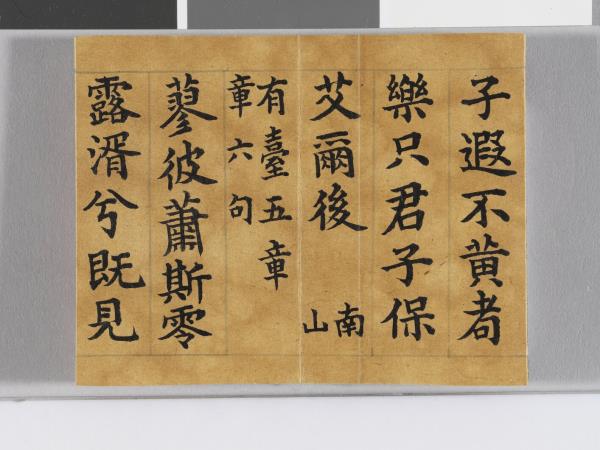 子遐不黄耇
樂只君子保
艾爾後 南
山
有臺五章
章六句
蓼彼蕭斯零
露湑兮既見